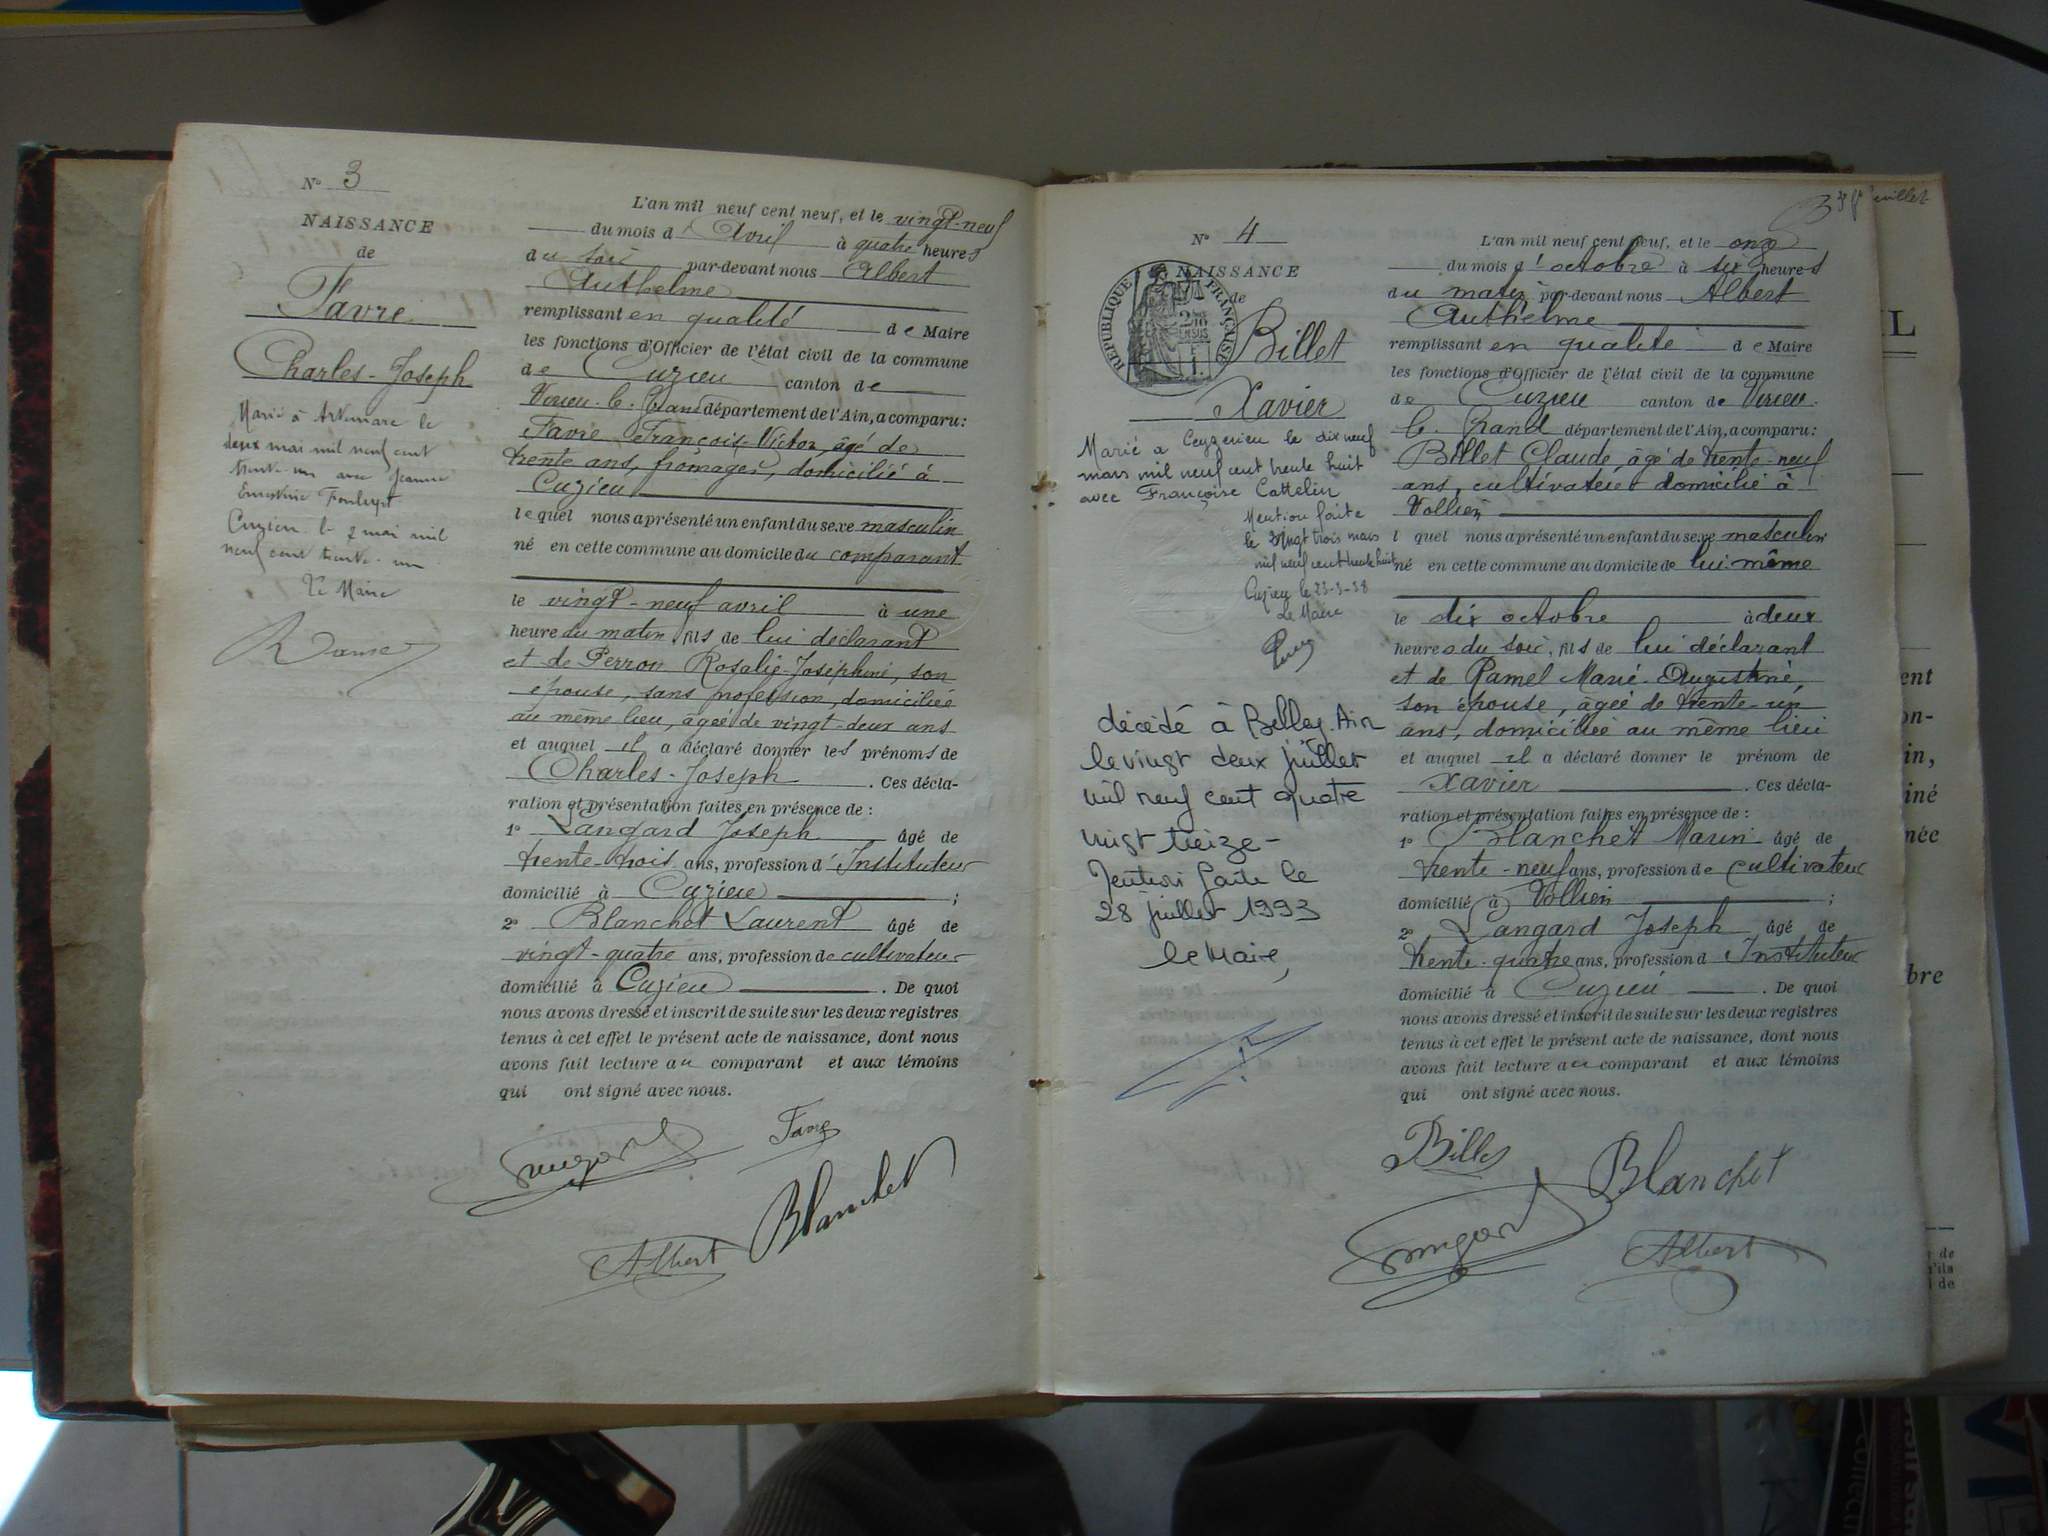 N° 3
NAISSANCE
de
Favre
Charles-Joseph
Marié à Artemare le
deux mai mil neuf cent
trente-un avec Jeanne
Ernestine
Cuzieu le 2 mai mil
neuf cent trente-un
Le Maire
L'an mil neuf cent neuf, et le vingt-neuf
du mois d'Avril à quatre heures
du soir par-devant nous Albert
Anthelme
remplissant en qualité de Maire
les fonctions d'Officier de l'état civil de la commune
de Cuzieu canton de
Virieu-le-Grand département de l'Ain, a comparu :
Favre François-Victor, âgé de
trente ans, fromager, domicilié à
Cuzieu
lequel nous a présenté un enfant du sexe masculin
né en cette commune au domicile du comparant
le vingt-neuf avril à une
heure du matin, fils de lui déclarant
et de Perron Rosalie-Joséphine, son
épouse, sans profession, domiciliée
au même lieu, âgée de vingt-deux ans
et auquel il a déclaré donner les prénoms de
Charles-Joseph. Ces décla-
ration et présentation faites en présence de :
1° Langard Joseph âgé de
trente-trois ans, profession d'Instituteur
domicilié à Cuzieu ;
2° Blanchet Laurent âgé de
vingt-quatre ans, profession de cultivateur
domicilié à Cuzieu. De quoi
nous avons dressé et inscrit de suite sur les deux registres
tenus à cet effet le présent acte de naissance, dont nous
avons fait lecture au comparant et aux témoins
qui ont signé avec nous.
Langard Favre
Albert Blanchet
3e feuillet
N° 4
NAISSANCE
de
RÉPUBLIQUE FRANÇAISE
Billet
Xavier
Marié à Ceyzerieu le dix neuf
mars mil neuf cent trente huit
avec Françoise Cattelin
Mention faite
le vingt trois mars
mil neuf cent trente huit
Cuzieu le 23-3-38
Le Maire
décédé à Belley. Ain
le vingt deux juillet
mil neuf cent quatre
vingt treize -
Mention faite le
28 juillet 1993
le Maire,
L'an mil neuf cent neuf, et le onze
du mois d'octobre à six heures
du matin par-devant nous Albert
Anthelme
remplissant en qualité de Maire
les fonctions d'Officier de l'état civil de la commune
de Cuzieu canton de Virieu-
le-Grand département de l'Ain, a comparu :
Billet Claude, âgé de trente-neuf
ans, cultivateur domicilié à
Vollien
l quel nous a présenté un enfant du sexe masculin
né en cette commune au domicile de lui-même
le dix octobre à deux
heures du soir, fils de lui déclarant
et de Ramel Marie-Augustine,
son épouse, âgée de trente-un
ans, domiciliée au même lieu
et auquel il a déclaré donner le prénom de
Xavier. Ces décla-
ration et présentation faites en présence de :
1° Blanchet Marin âgé de
trente-neuf ans, profession de cultivateur
domicilié à Vollien ;
2° Langard Joseph âgé de
trente-quatre ans, profession d'Instituteur
domicilié à Cuzieu. De quoi
nous avons dressé et inscrit de suite sur les deux registres
tenus à cet effet le présent acte de naissance, dont nous
avons fait lecture au comparant et aux témoins
qui ont signé avec nous.
Billet Blanchet
Langard Albert